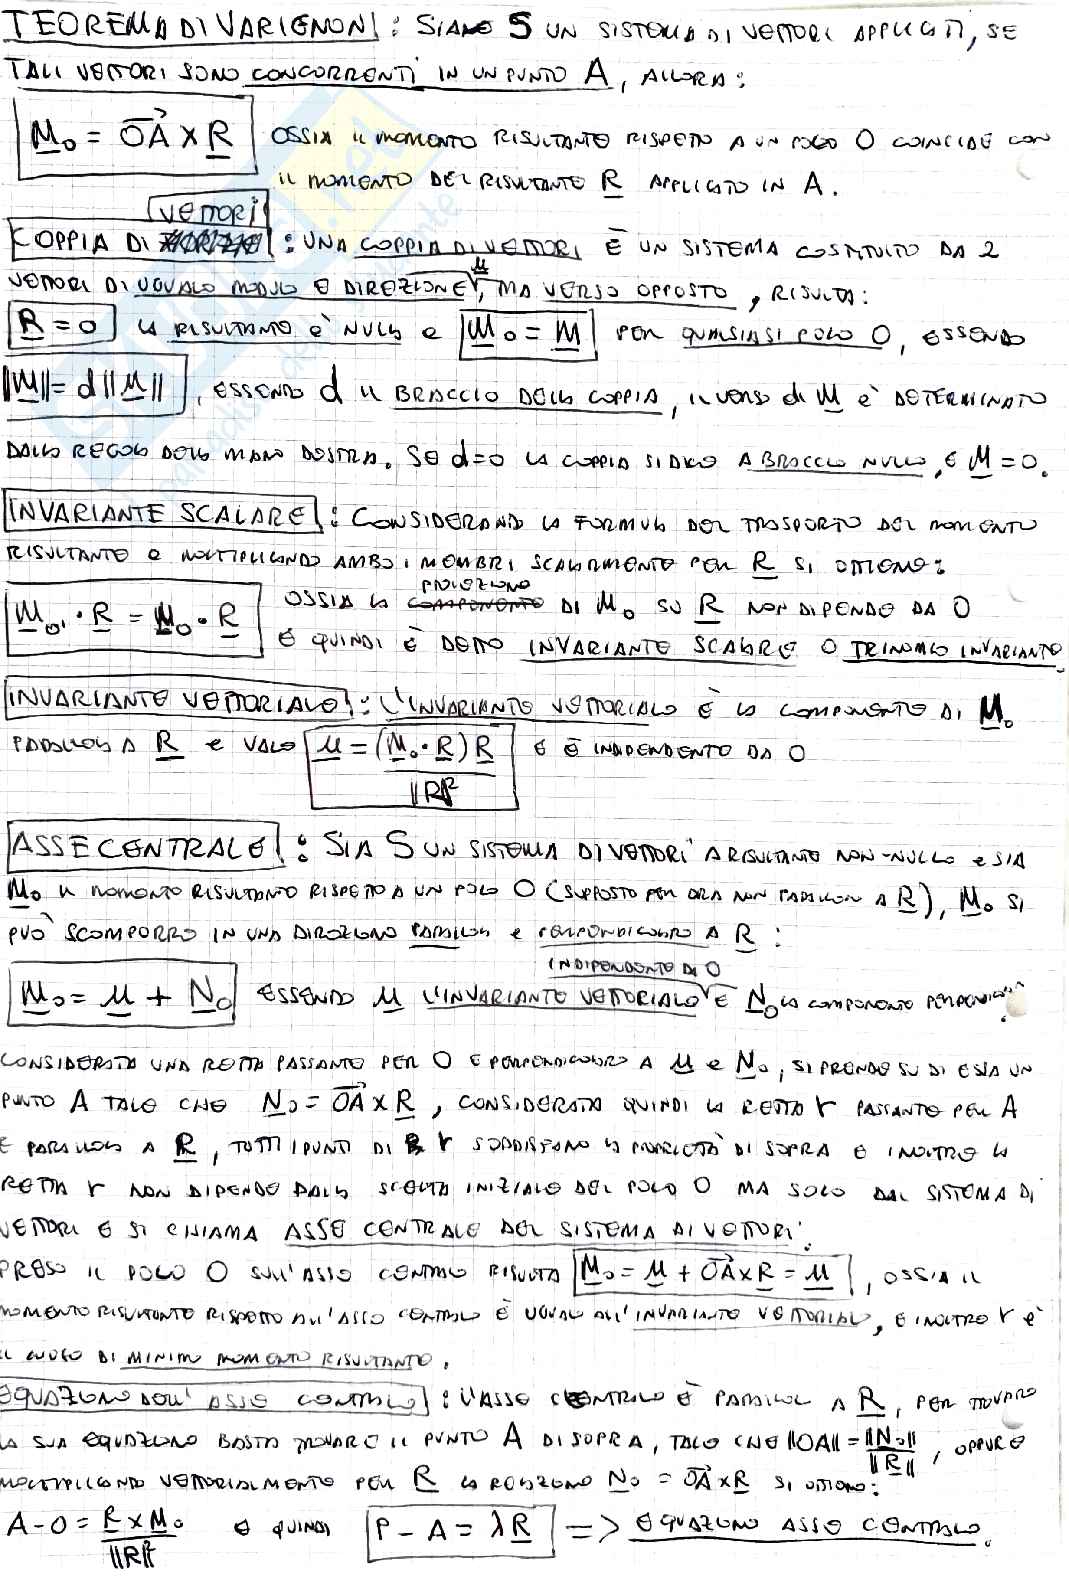 TEOREMA DI VARIGNON: SIANO S UN SISTEMA DI VETTORI APPLICATI, SE
TALI VETTORI SONO CONCORRENTI IN UN PUNTO A, ALLORA:
M₀ = OA × R OSSIA IL MOMENTO RISULTANTE RISPETTO A UN POLO O COINCIDE CON
IL MOMENTO DEL RISULTANTE R APPLICATO IN A.
VETTORI
COPPIA DI : UNA COPPIA DI VETTORI È UN SISTEMA COSTITUITO DA 2
VETTORI DI UGUALE MODULO E DIREZIONE μ, MA VERSO OPPOSTO, RISULTA:
R = 0 LA RISULTANTE È NULLA E M₀ = M PER QUALSIASI POLO O, ESSENDO
||M|| = d||μ||, ESSENDO d IL BRACCIO DELLA COPPIA, IL VERSO di M è DETERMINATO
DALLA REGOLA DELLA MANO DESTRA. SE d=0 LA COPPIA SI DICE A BRACCIO NULLO, E M = 0.
INVARIANTE SCALARE: CONSIDERANDO LA FORMULA DEL TRASPORTO DEL MOMENTO
RISULTANTE E MOLTIPLICANDO AMBO i MEMBRI SCALARMENTE PER R SI OTTIENE:
PROIEZIONE
M₀' · R = M₀ · R OSSIA LA COMPONENTE DI M₀ SU R NON DIPENDE DA O
E QUINDI È DETTO INVARIANTE SCALARE O TRINOMIO INVARIANTE.
INVARIANTE VETTORIALE: L'INVARIANTE VETTORIALE È LA COMPONENTE DI M₀
PARALLELA A R E VALE μ = (M₀ · R) R / ||R||² E È INDIPENDENTE DA O
ASSE CENTRALE: SIA S UN SISTEMA DI VETTORI A RISULTANTE NON-NULLO e SIA
M₀ IL MOMENTO RISULTANTE RISPETTO A UN POLO O (SUPPOSTO PER ORA NON PARALLELO A R), M₀ SI
PUÒ SCOMPORRE IN UNA DIREZIONE PARALLELA e PERPENDICOLARE A R:
INDIPENDENTE DA O
M₀ = μ + N₀ ESSENDO μ L'INVARIANTE VETTORIALE E N₀ LA COMPONENTE PERPENDICOLARE.
CONSIDERATA UNA RETTA PASSANTE PER O E PERPENDICOLARE A μ e N₀, SI PRENDE SU DI ESSA UN
PUNTO A TALE CHE N₀ = OA × R, CONSIDERATA QUINDI LA RETTA r PASSANTE PER A
E PARALLELA A R, TUTTI I PUNTI DI r SODDISFANO LA PROPRIETÀ DI SOPRA E INOLTRE LA
RETTA r NON DIPENDE DALLA SCELTA INIZIALE DEL POLO O MA SOLO DAL SISTEMA DI
VETTORI E SI CHIAMA ASSE CENTRALE DEL SISTEMA DI VETTORI.
PRESO IL POLO O SULL'ASSE CENTRALE RISULTA M₀ = μ + OA × R = μ, OSSIA IL
MOMENTO RISULTANTE RISPETTO ALL'ASSE CENTRALE È UGUALE ALL'INVARIANTE VETTORIALE, E INOLTRE r è
IL LUOGO DI MINIMO MOMENTO RISULTANTE.
EQUAZIONE DELL'ASSE CENTRALE: L'ASSE CENTRALE È PARALLEL A R, PER TROVARE
LA SUA EQUAZIONE BASTA TROVARE IL PUNTO A DI SOPRA, TALE CHE ||OA|| = ||N₀|| / ||R||, OPPURE
MOLTIPLICANDO VETTORIALMENTE PER R LA RELAZIONE N₀ = OA × R SI OTTIENE:
A - O = R × M₀ / ||R||² E QUINDI P - A = λR => EQUAZIONE ASSE CENTRALE.